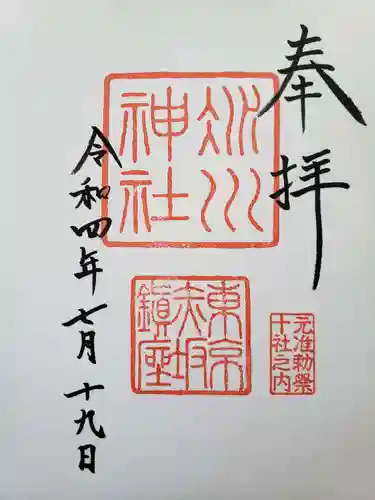 奉拝
氷川
神社
東京
赤坂
鎮座
元准勅祭
十社之内
令和四年七月十九日